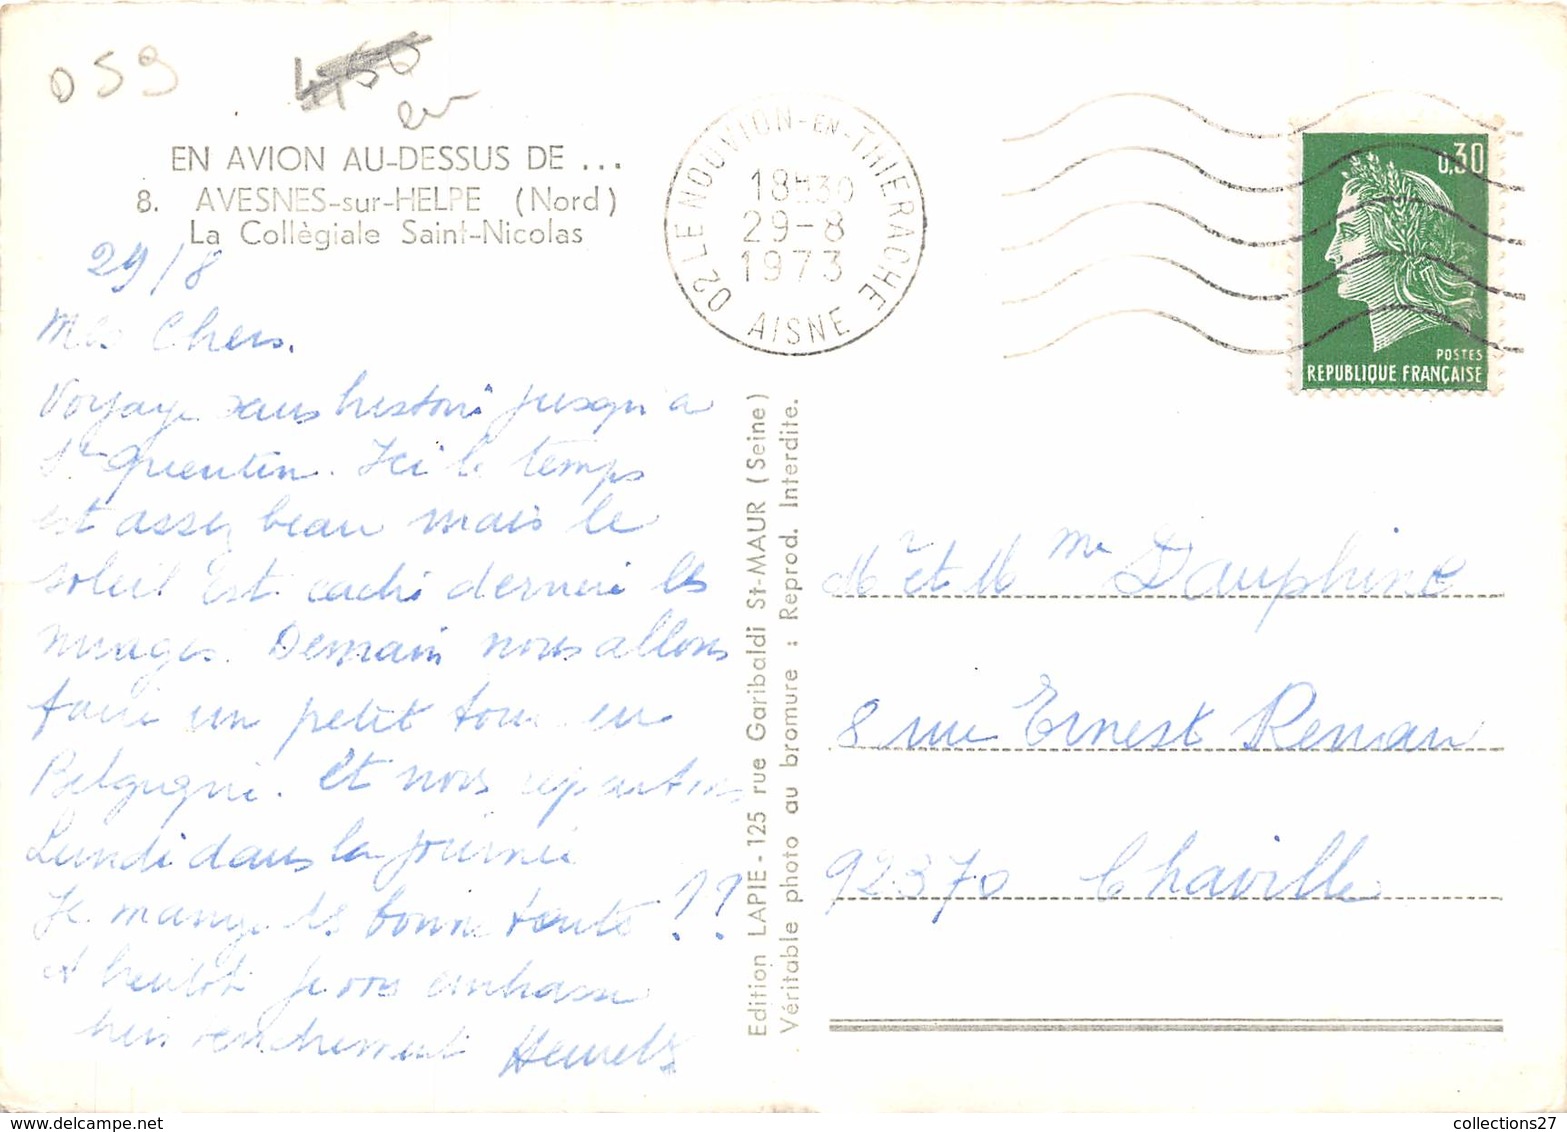 D59
4,50
EN AVION AU-DESSUS DE ...
8. AVESNES-sur-HELPE (Nord)
La Collègiale Saint-Nicolas
29/8
Mes Chers.
Voyage sans histoire jusqu'a
St Quentin. Ici le temps
est assez beau mais le
soleil est caché derriere les
nuages. Demain nous allons
faire un petit tour en
Belgique. Et nous repartons
Lundi dans la journée
Je mange de bonne tarte !!
A bientôt je vous embrasse
bien tendrement
Edition LAPIE - 125 rue Garibaldi St-MAUR (Seine)
Véritable photo au bromure : Reprod. Interdite.
02 LE NOUVION-EN-THIERACHE
18H30
29-8
1973
AISNE
0,30
POSTES
REPUBLIQUE FRANÇAISE
Mr et Mme Dauphine
8 rue Ernest Renan
92370 Chaville
collections27